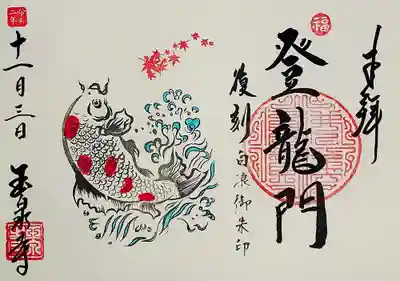 奉拝
福
登龍門
復刻
白浪御朱印
令和二年
十一月三日